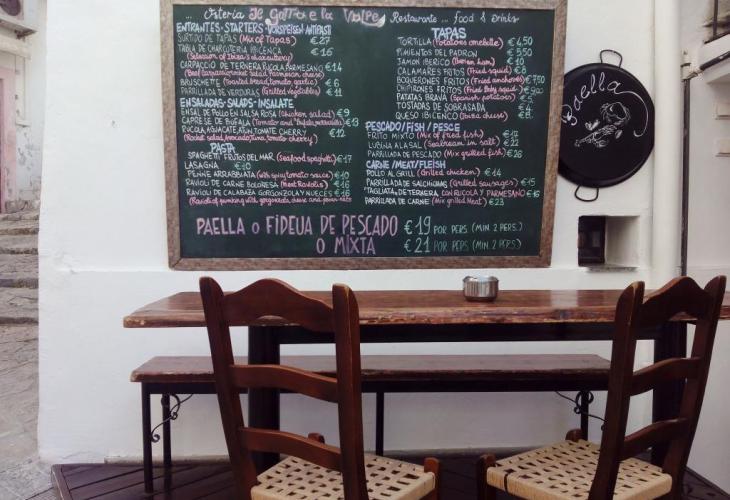 ... Osteria Il Gatto e la Volpe
Restaurante ... food & drinks
ENTRANTES · STARTERS · VORSPEISEN · ANTIPASTI
SURTIDO DE TAPAS (Mix of Tapas) €27
TABLA DE CHARCUTERIA IBICENCA €16
(Selection of Ibiza's charcuterie)
CARPACCIO DE TERNERA RUCULA PARMESANO €14
(Beef carpaccio rocket salad, parmesan, cheese)
BRUSCHETTE (Toasted bread, tomato, garlic) €6
PARRILLADA DE VERDURAS (Grilled vegetables) €11
ENSALADAS · SALADS · INSALATE
ENSAL. DE POLLO EN SALSA ROSA (chicken salad) €9
CAPRESE DE BUFALA (Tomato and Bufala mozzarella) €13
RUCOLA, AGUACATE, ATUN, TOMATE CHERRY €12
(Rocket salad, avocado, tuna, tomato cherry)
PASTA
SPAGHETTI FRUTOS DEL MAR. (Seafood spaghetti) €17
LASAGNA €10
PENNE ARRABBIATA (with spicy tomato sauce) €10
RAVIOLI DE CARNE BOLOÑESA (Meat Raviolis) €16
RAVIOLI DE CALABAZA GORGONZOLA Y NUECES €16
(Ravioli of pumpking with gorgonzola, cheese and pinar nuts)
TAPAS
TORTILLA (Potatoes omelette) €4,50
PIMIENTOS DEL PADRON €5,50
JAMON IBERICO (Iberian ham) €10
CALAMARES FRITOS (Fried squid) €8
BOQUERONES FRITOS (Fried anchovies) €7,50
CHIPIRONES FRITOS (Fried Baby squid) €900
PATATAS BRAVA (Spanish potatoes) €5
TOSTADAS DE SOBRASADA €4
QUESO IBICENCO (Ibiza cheese) €8
PESCADO / FISH / PESCE
FRITO MIXTO (Mix of fried fish) €17
LUBINA A LA SAL (Seabream in salt) €22
PARRILLADA DE PESCADO (Mix grilled fish) €26
CARNE / MEAT / FLEISH
POLLO AL GRILL (Grilled chicken) €14
PARRILLADA DE SALCHICHAS (Grilled sausages) €15
TAGLIATA DE TERNERA, CON RUCOLA Y PARMESANO €16
PARRILLADA DE CARNE (Mix grilled Meat) €23
PAELLA O FIDEUA DE PESCADO €19 POR PERS. (MIN 2 PERS.)
O MIXTA €21 POR PERS (MIN. 2 PERS.)
Paella